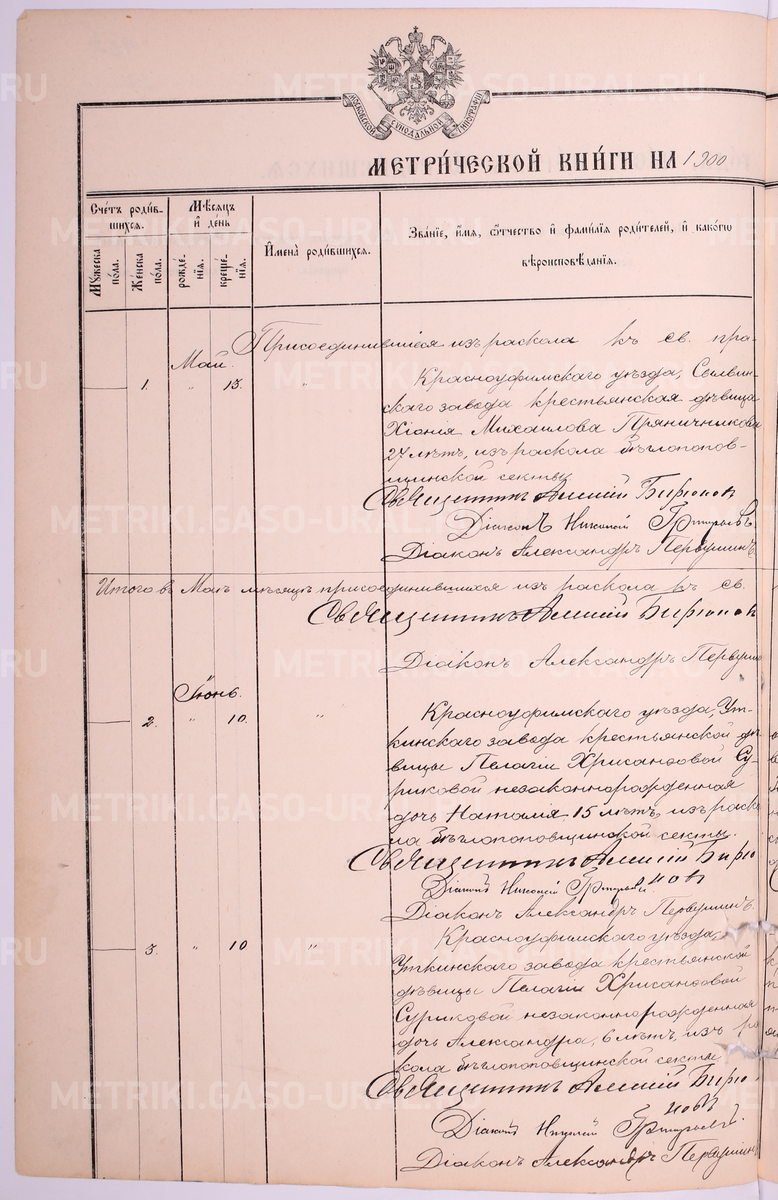 МОСКОВСКОЙ СѴНОДАЛЬНОЙ ТИПОГРАФІИ
МЕТРИ́ЧЕСКОЙ КНИ́ГИ НА 1900
Сче́тъ роди́в-
шихся.
Му́жеска по́ла.
Же́нска по́ла.
Мѣ́сяцъ
и҆ де́нь
рожде́-
нїя.
креще́-
нїя.
И҆мена̀ роди́вшихся.
Зва́нїе, и҆́мя, ѻ҆́тчество и҆ фами́лїя роди́телей, и҆ како́гѡ
вѣроисповѣ́данїя.
Присоединившіеся изъ раскола къ св. пра-
Май.
1. " 13. "
Красноуфимскаго уѣзда, Сылвин-
скаго завода крестьянская дѣвица
Хіонія Михаилова Пряничникова
27 лѣтъ, изъ раскола бѣглопопов-
щинской секты
Священникъ Алексій Бирюков
Діаконъ Николай Григорьевъ
Діаконъ Александръ Первушинъ
Итого въ Маѣ мѣсяцѣ присоединившихся изъ раскола къ св.
Священникъ Алексій Бирюков
Діаконъ Александръ Первуши
Іюнь.
2. " 10. "
Красноуфимскаго уѣзда, Ут-
кинскаго завода крестьянской дѣ
вицы Пелагіи Хрисанфовой Су-
риковой незаконнорожденная
дочь Наталія 15 лѣтъ, изъ раск
ла бѣглопоповщинской секты.
Священникъ Алексій Бирю
ков
Діаконъ Николай Григорьев
Діаконъ Александръ Первушинъ.
3. " 10 "
Красноуфимскаго уѣзда,
Уткинскаго завода крестьянской
дѣвицы Пелагіи Хрисанфовой
Суриковой незаконнорожденная
дочь Александра, 6 лѣтъ, изъ ра
кола бѣглопоповщинской секты
Священникъ Алексій Бирю-
ковъ
Діаконъ Николай Григорьевъ.
Діаконъ Александръ Первушинъ
METRIKI.GASO-URAL.RU